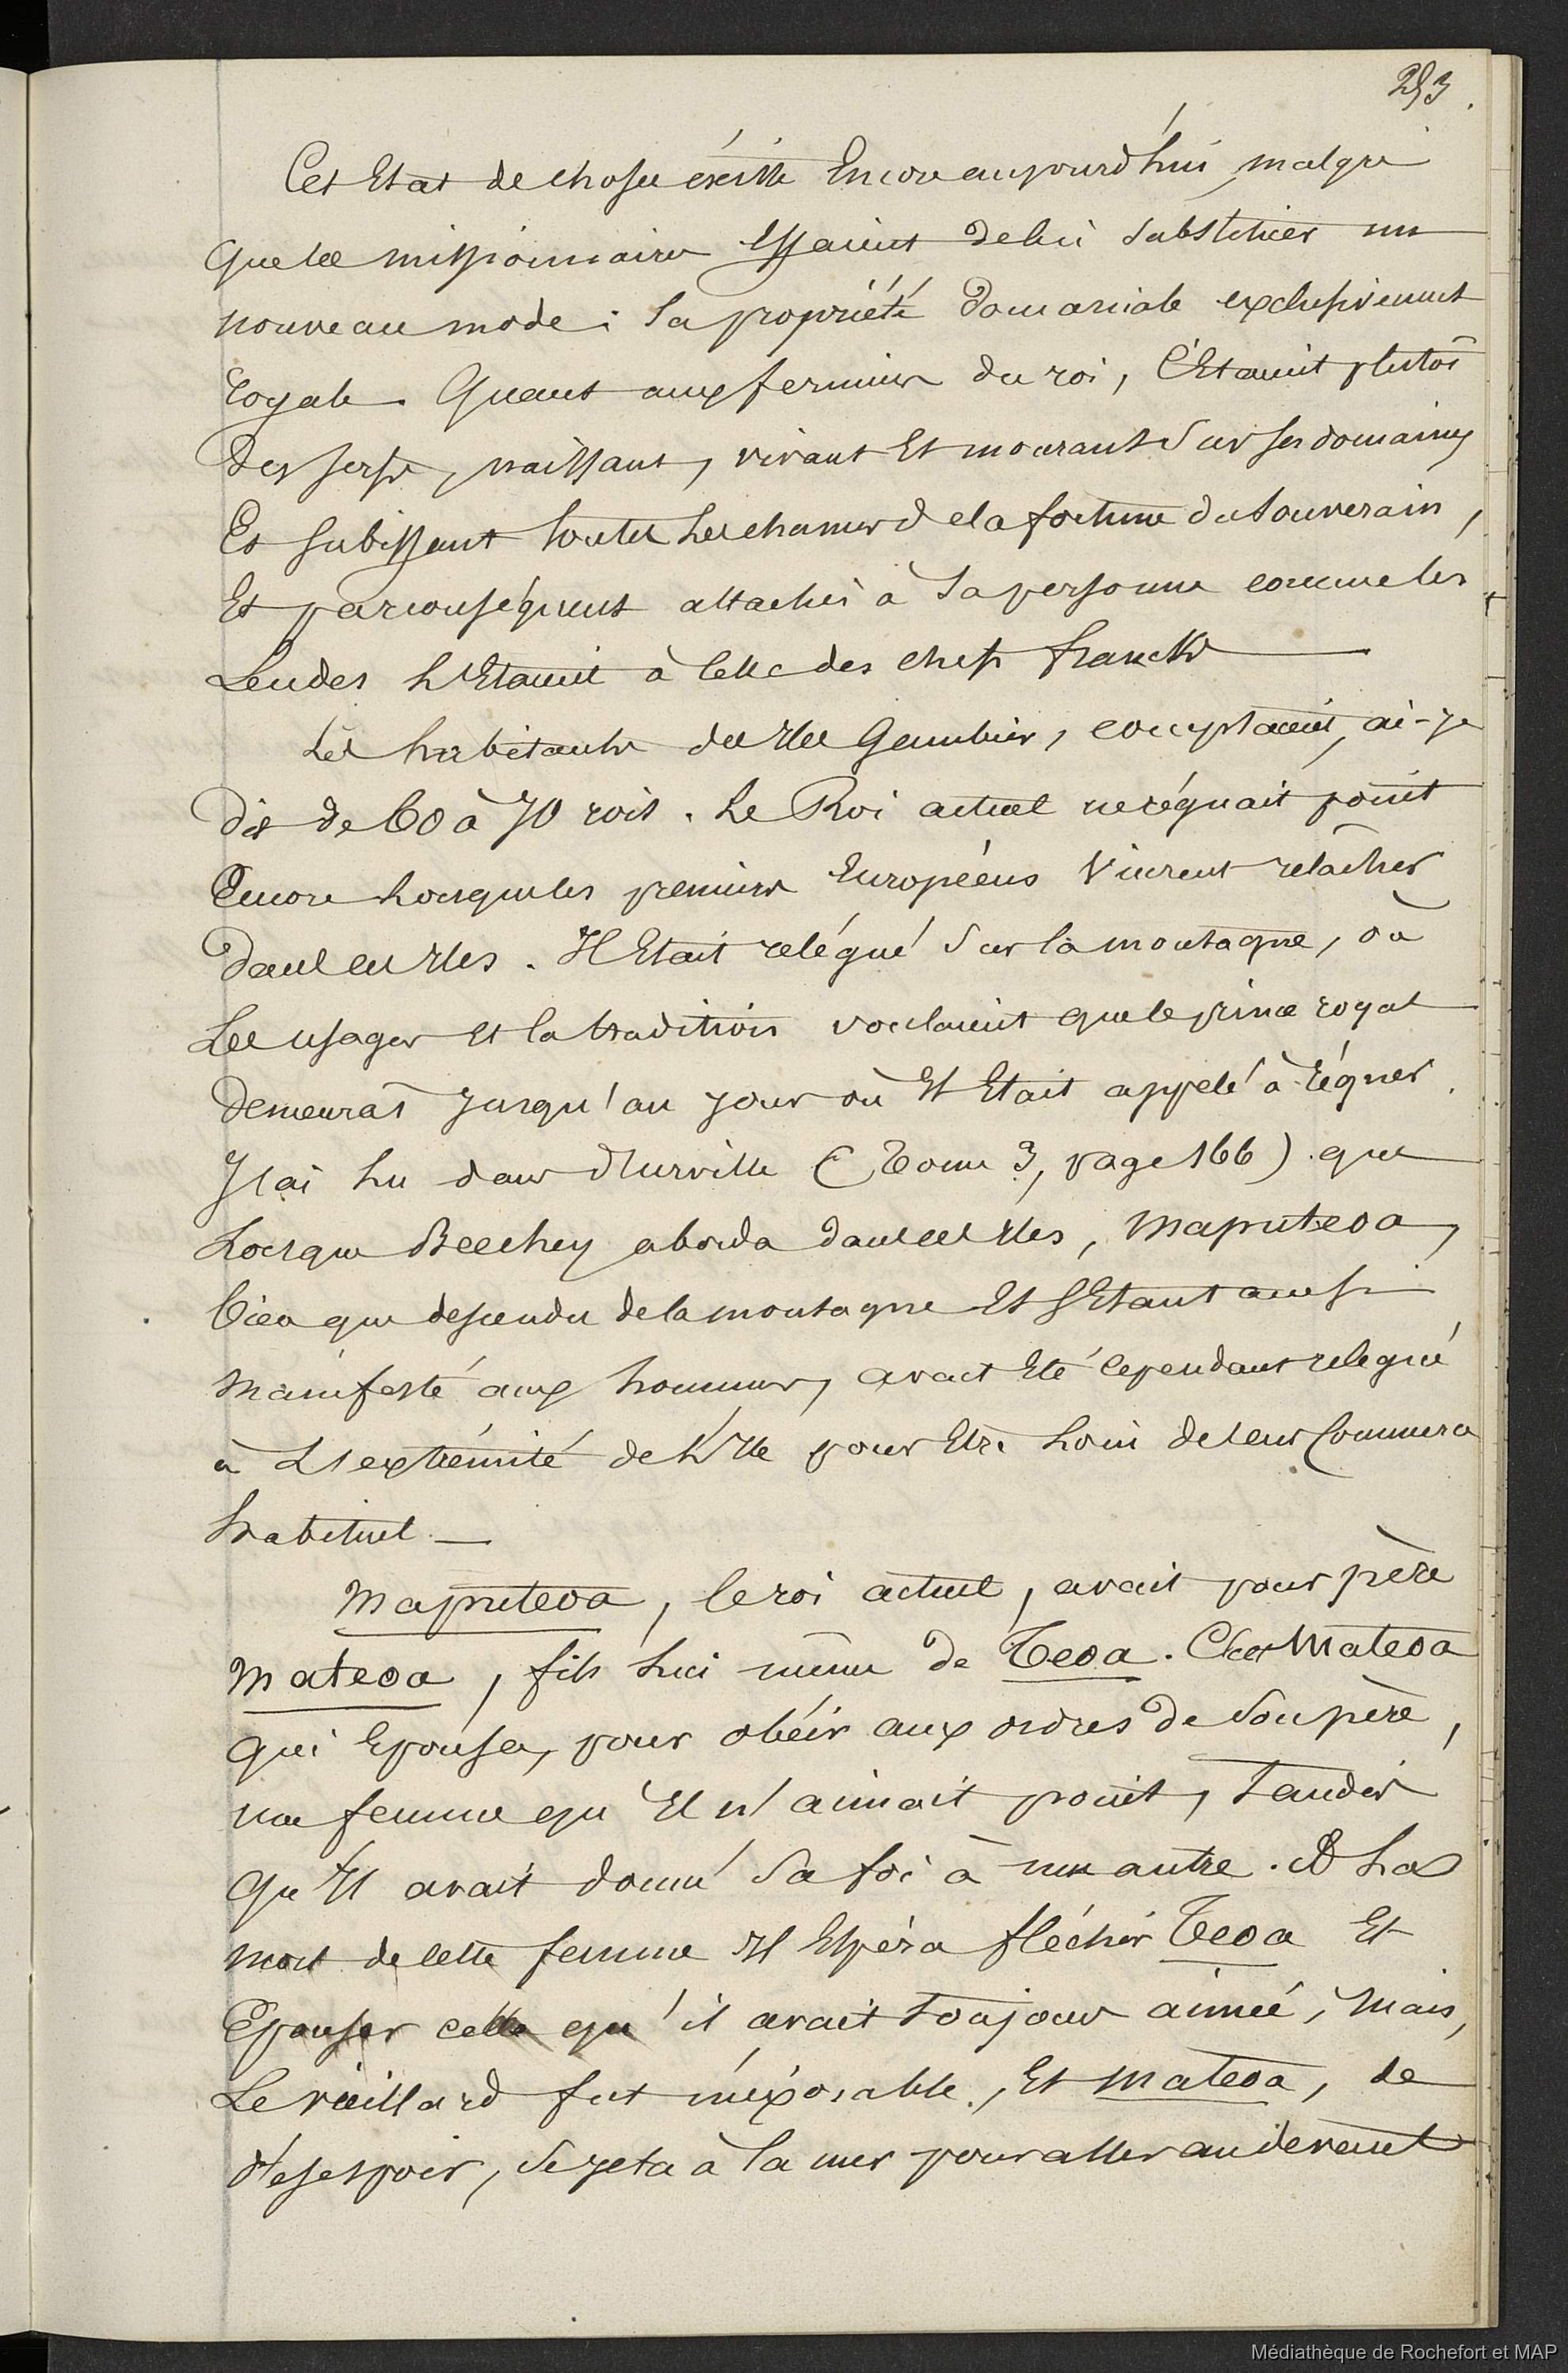 253.
Cet Etat de choses éxiste Encore aujourd'hui, malgré
que les missionnaires Essaient de lui substituer un
nouveau mode : la propriété domaniale exclusivement
royale. Quant aux fermiers du roi, C'Etaient plutôt
des serfs, naissant, vivant Et mourant sur ses domaines
Et subissant toutes les chances de la fortune du souverain,
Et par conséquent attachés à sa personne comme les
Leudes l'Etaient à celle des chefs francks
Les habitants des Iles Gambier, comptaient, ai-je
dit de 60 à 70 rois. Le Roi actuel ne régnait point
Encore lorsque les premiers Européens vinrent relâcher
dans ces Iles. Il Etait relégué sur la montagne, où
Les usages et la tradition voulaient que le prince royal
demeurât jusqu'au jour où Il Etait appelé à régner.
J'ai lu dans d'Urville (Tome 3, page 166) que
Lorsque Beechey aborda dans ces Iles, Maputeoa,
bien que descendu de la montagne Et s'Etant aussi
manifesté aux hommes, avait Eté cependant relégué
à L'extrémité de l'Ile pour Etre loin de leur Commerce
habituel. —
Maputeoa, le roi actuel, avait pour père
Mateoa, fils lui même de Teoa. C'est Mateoa
qui Epousa, pour obéir aux ordres de son père,
une femme qu'Il n'aimait point, Tandis
qu'Il avait donné sa foi à une autre. A La
mort de cette femme Il Espéra fléchir Teoa Et
Epouser celle qu'il avait toujours aimée, Mais,
Le vieillard fut inéxorable, Et Mateoa, de
désespoir, se jeta à la mer pour aller au devant
Médiathèque de Rochefort et MAP